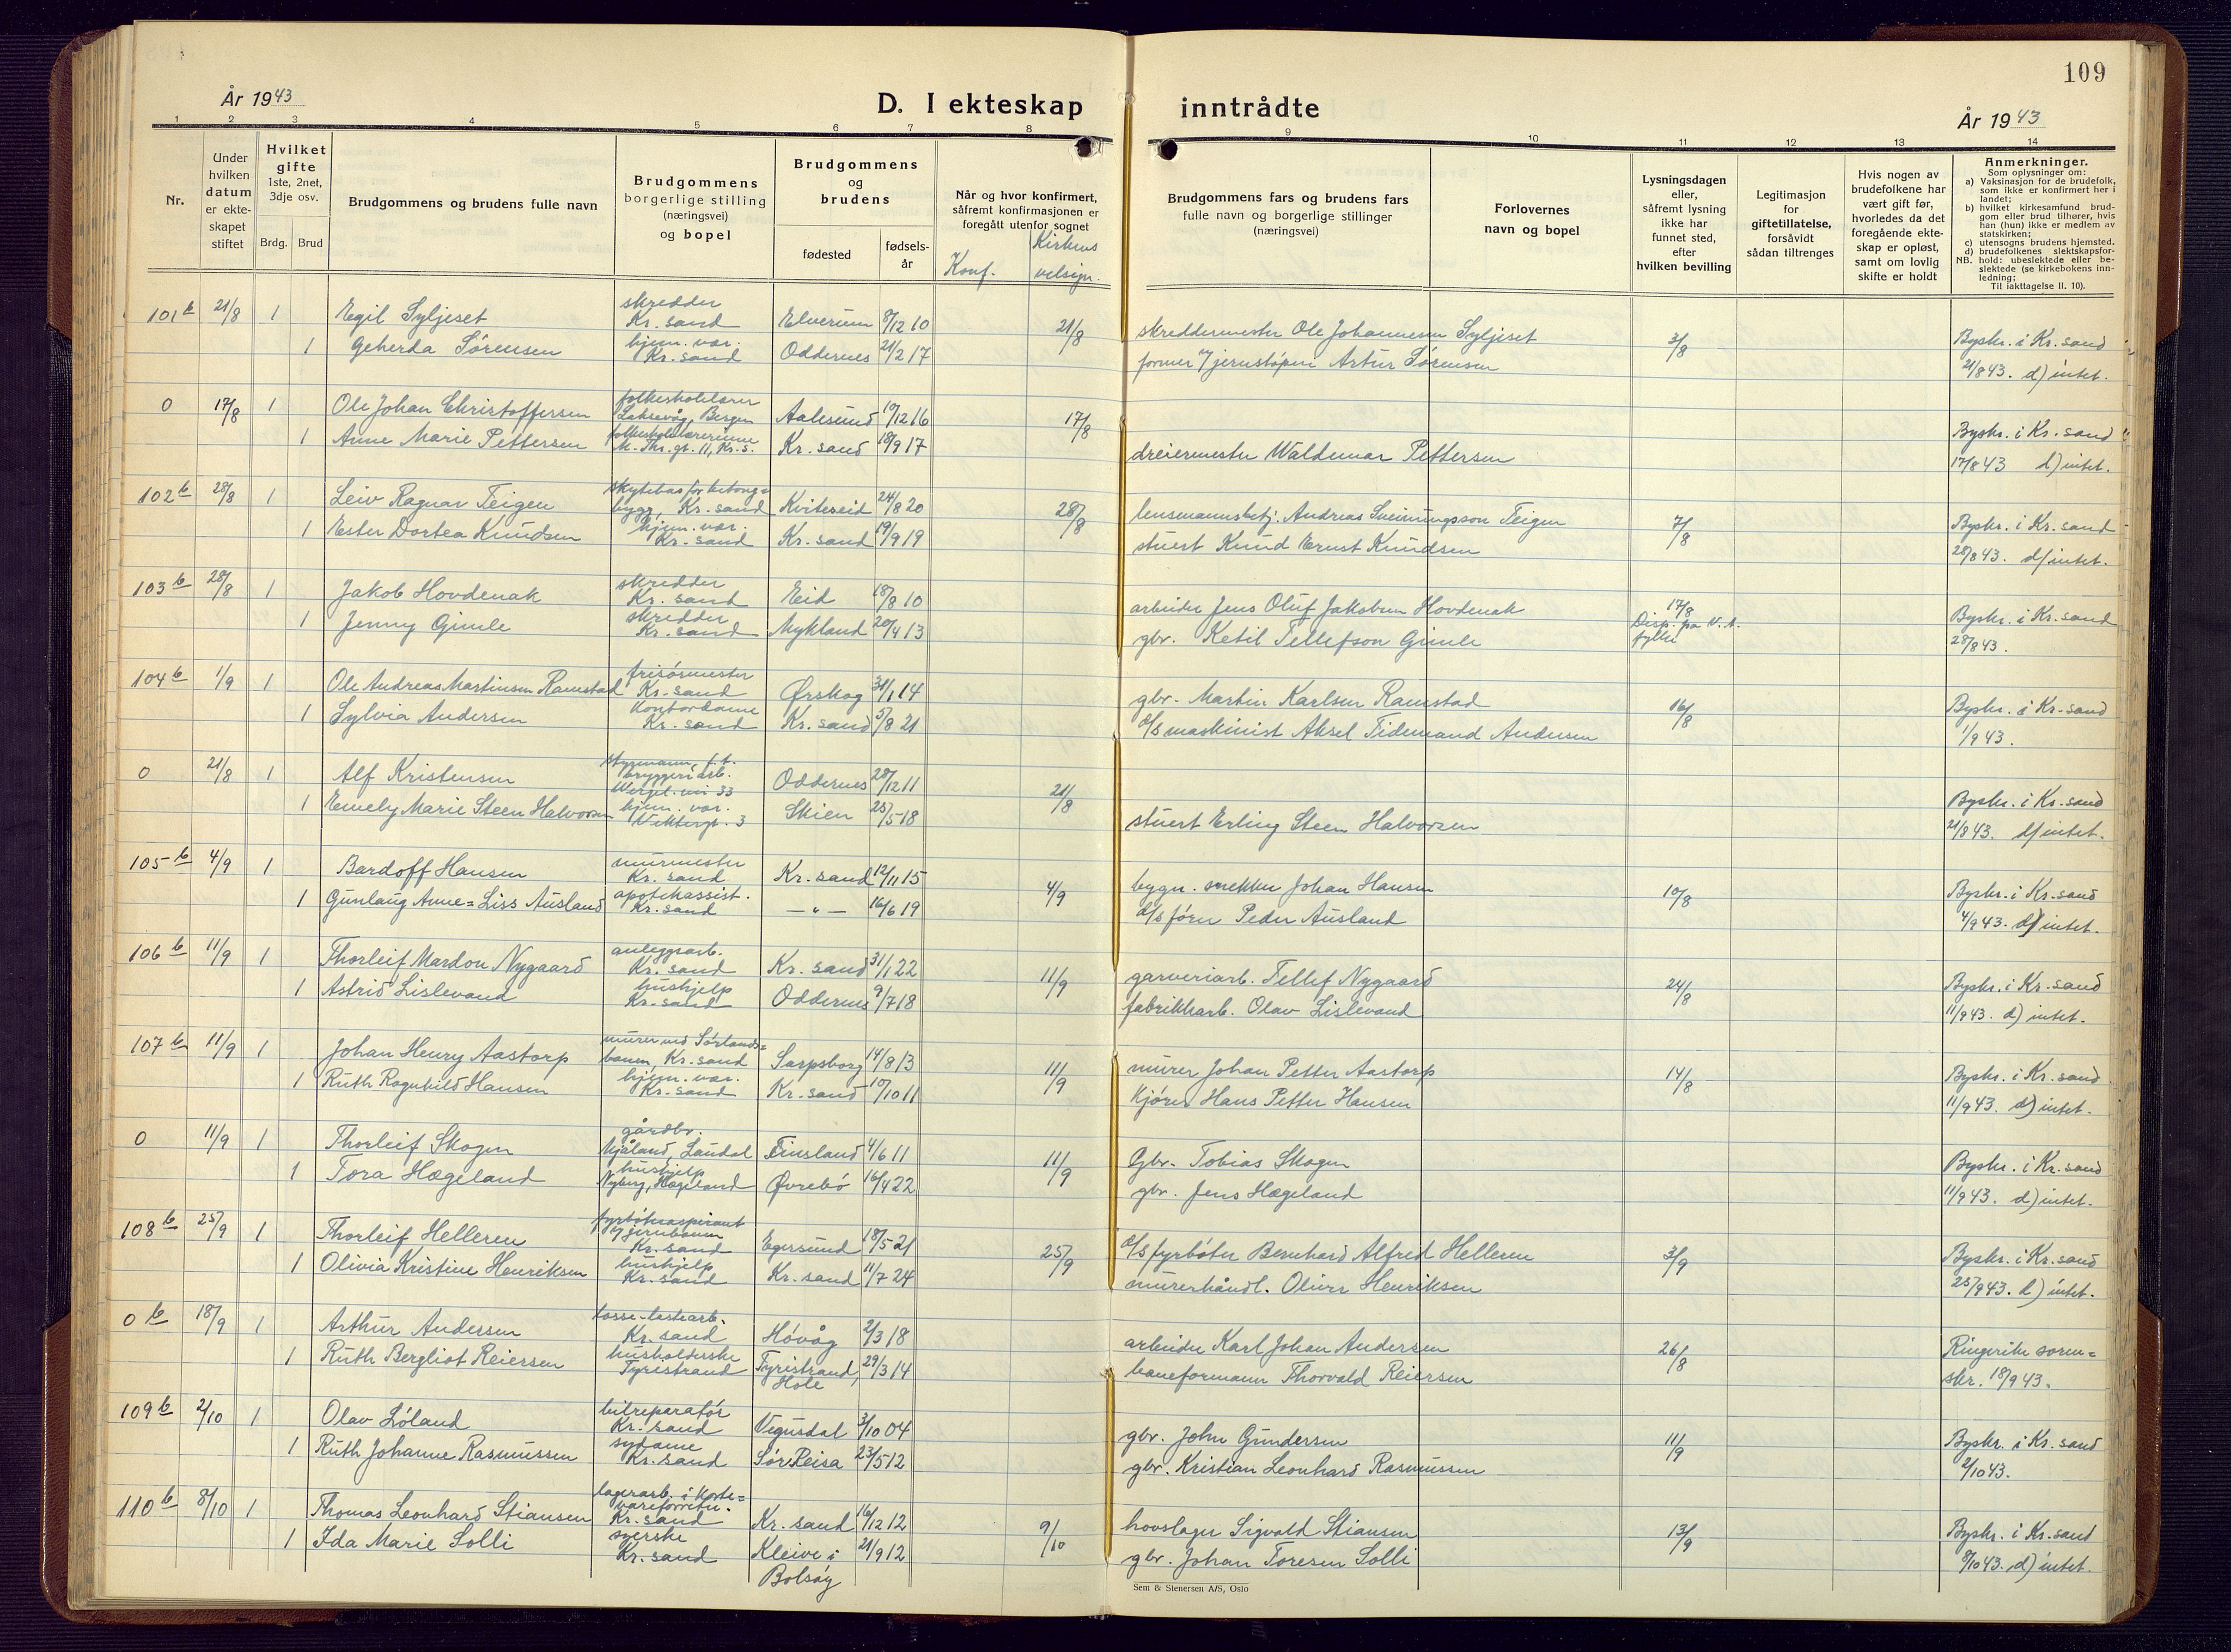 109
År 1943
D. I ekteskap inntrådte
År 1943
1 2 3 4 5 6 7 8 9 10 11 12 13 14
Nr.
Under hvilken datum er ekteskapet stiftet
Hvilket gifte 1ste, 2net, 3dje osv.
Brdg. Brud
Brudgommens og brudens fulle navn
Brudgommens borgerlige stilling (næringsvei) og bopel
Brudgommens og brudens
fødested
fødselsår
Når og hvor konfirmert, såfremt konfirmasjonen er foregått utenfor sognet
Konf. Kirkens velsign.
Brudgommens fars og brudens fars fulle navn og borgerlige stillinger (næringsvei)
Forlovernes navn og bopel
Lysningsdagen eller, såfremt lysning ikke har funnet sted, efter hvilken bevilling
Legitimasjon for giftetillatelse, forsåvidt sådan tiltrenges
Hvis nogen av brudefolkene har vært gift før, hvorledes da det foregående ekteskap er opløst, samt om lovlig skifte er holdt
Anmerkninger.
Som oplysninger om:
a) Vaksinasjon for de brudefolk, som ikke er konfirmert her i landet;
b) hvilket kirkesamfund brudgom eller brud tilhører, hvis han (hun) ikke er medlem av statskirken;
c) utensogns brudens hjemsted.
d) brudefolkenes slektskapsforhold: ubeslektede eller beslektede (se kirkebokens innledning;
NB. Til iakttagelse II. 10).
101 b 21/8 1 Egil Syljeset skredder Kr. sand Elverum 8/12 10 21/8 skreddermester Ole Johannesen Syljeset 3/8 Byskr. i Kr. sand
1 Geherda Sørensen hjem. var. Kr. sand Oddernes 21/2 17 former v/jernstøperi Artur Sørensen 21/8 43. d) intet.
0 17/8 1 Ole Johan Christoffersen folkeskolelærer Laksevåg, Bergen Aalesund 19/12 16 17/8 Byskr. i Kr. sand
1 Anne Marie Pettersen folkeskolelærerinne M. Thr. gt. 11, Kr. s. Kr. sand 18/9 17 dreiermester Waldemar Pettersen 17/8 43 d) intet.
102 b 28/8 1 Leiv Ragnar Teigen skytebas for betongbygg, Kr. sand Kviteseid 24/8 20 28/8 lensmannsbetj. Andreas Sveinungsson Teigen 7/8 Byskr. i Kr. sand
1 Ester Dortea Knudsen hjem. var. Kr. sand Kr. sand 19/9 19 stuert Knud Ernst Knudsen 28/8 43. d) intet.
103 b 28/8 1 Jakob Hovdenak skredder Kr. sand Eid 18/8 10 arbeider Jens Oluf Jakobsen Hovdenak 17/8 Byskr. i Kr. sand
1 Jenny Gimle skredder Kr. sand Mykland 20/4 13 gbr. Ketil Tellefson Gimle Disp. fra V. A. fylke 28/8 43.
104 b 1/9 1 Ole Andreas Martinsen Ramstad frisørmester Kr. sand Ørskog 31/1 14 gbr. Martin Karlsen Ramstad 16/8 Byskr. i Kr. sand
1 Sylvia Andersen Kontordame Kr. sand Kr. sand 5/8 21 d/s maskinist Aksel Tidemand Andersen 1/9 43.
0 21/8 1 Alf Kristensen styrmann, f. t. bryggeriarb. Wergel. vei 33 Oddernes 28/12 11 21/8 Byskr. i Kr. sand
1 Emely Marie Steen Halvorsen hjem. var. Vestergt. 3 Skien 25/5 18 stuert Erling Steen Halvorsen 21/8 43. d) intet.
105 b 4/9 1 Bardoff Hansen murmester Kr. sand Kr. sand 12/11 15 4/9 bygn. snekker Johan Hansen 10/8 Byskr. i Kr. sand
1 Gunlaug Anne=Liss Ausland apotekassist. Kr. sand — " — 16/6 19 d/s fører Peder Ausland 4/9 43. d) intet.
106 b 11/9 1 Thorleif Mardon Nygaard anleggsarb. Kr. sand Kr. sand 31/1 22 11/9 garveriarb. Tellef Nygaard 24/8 Byskr. i Kr. sand
1 Astrid Lislevand hushjelp Kr. sand Oddernes 9/7 18 fabrikkarb. Olav Lislevand 11/9 43. d) intet.
107 b 11/9 1 Johan Henry Aastorp murer ved Sørlandsbanen, Kr. sand Sarpsborg 14/8 13 11/9 murer Johan Petter Aastorp 14/8 Byskr. i Kr. sand
1 Ruth Ragnhild Hansen hjem. var. Kr. sand Kr. sand 10/10 11 Kjører Hans Petter Hansen 11/9 43. d) intet.
0 11/9 1 Thorleif Skogen gårdbr. Mjåland, Laudal Finsland 4/6 11 11/9 Gbr. Tobias Skogen Byskr. i Kr. sand
1 Tora Hægeland hushjelp Nyberg, Hægeland Øvrebø 16/4 22 gbr. Jens Hægeland 11/9 43. d) intet.
108 b 25/9 1 Thorleif Helleren fyrbøteraspirant v/jernbanen Kr. sand Egersund 18/5 21 25/9 d/s fyrbøter Bernhard Alfred Helleren 3/9 Byskr. i Kr. sand
1 Olivia Kristine Henriksen hushjelp Kr. sand Kr. sand 11/7 24 murerhåndl. Oliver Henriksen 25/9 43. d) intet.
0 b 18/9 1 Arthur Andersen losse-lastearb. Kr. sand Høvåg 2/3 18 arbeider Karl Johan Andersen 26/8 Ringerike soren=
1 Ruth Bergliot Reiersen husholderske Tyristrand Tyristrand, Hole 29/3 14 baneformann Thorvald Reiersen skr. 18/9 43.
109 b 2/10 1 Olav Løland bilreparatør Kr. sand Vegusdal 3/10 04 gbr. John Gundersen 11/9 Byskr. i Kr. sand
1 Ruth Johanne Rasmussen sydame Kr. sand Sør Reisa 23/5 12 gbr. Kristian Leonhard Rasmussen 2/10 43.
110 b 8/10 1 Thomas Leonhard Stiansen lagerarb. i Kortevareforretn. Kr. sand Kr. sand 16/12 12 9/10 hovslager Sigvald Stiansen 13/9 Byskr. i Kr. sand
1 Ida Marie Solli syerske Kr. sand Kleive i Bolsøy 21/9 12 gbr. Johan Toresen Solli 8/10 43. d) intet.
Sem & Stenersen A/S, Oslo